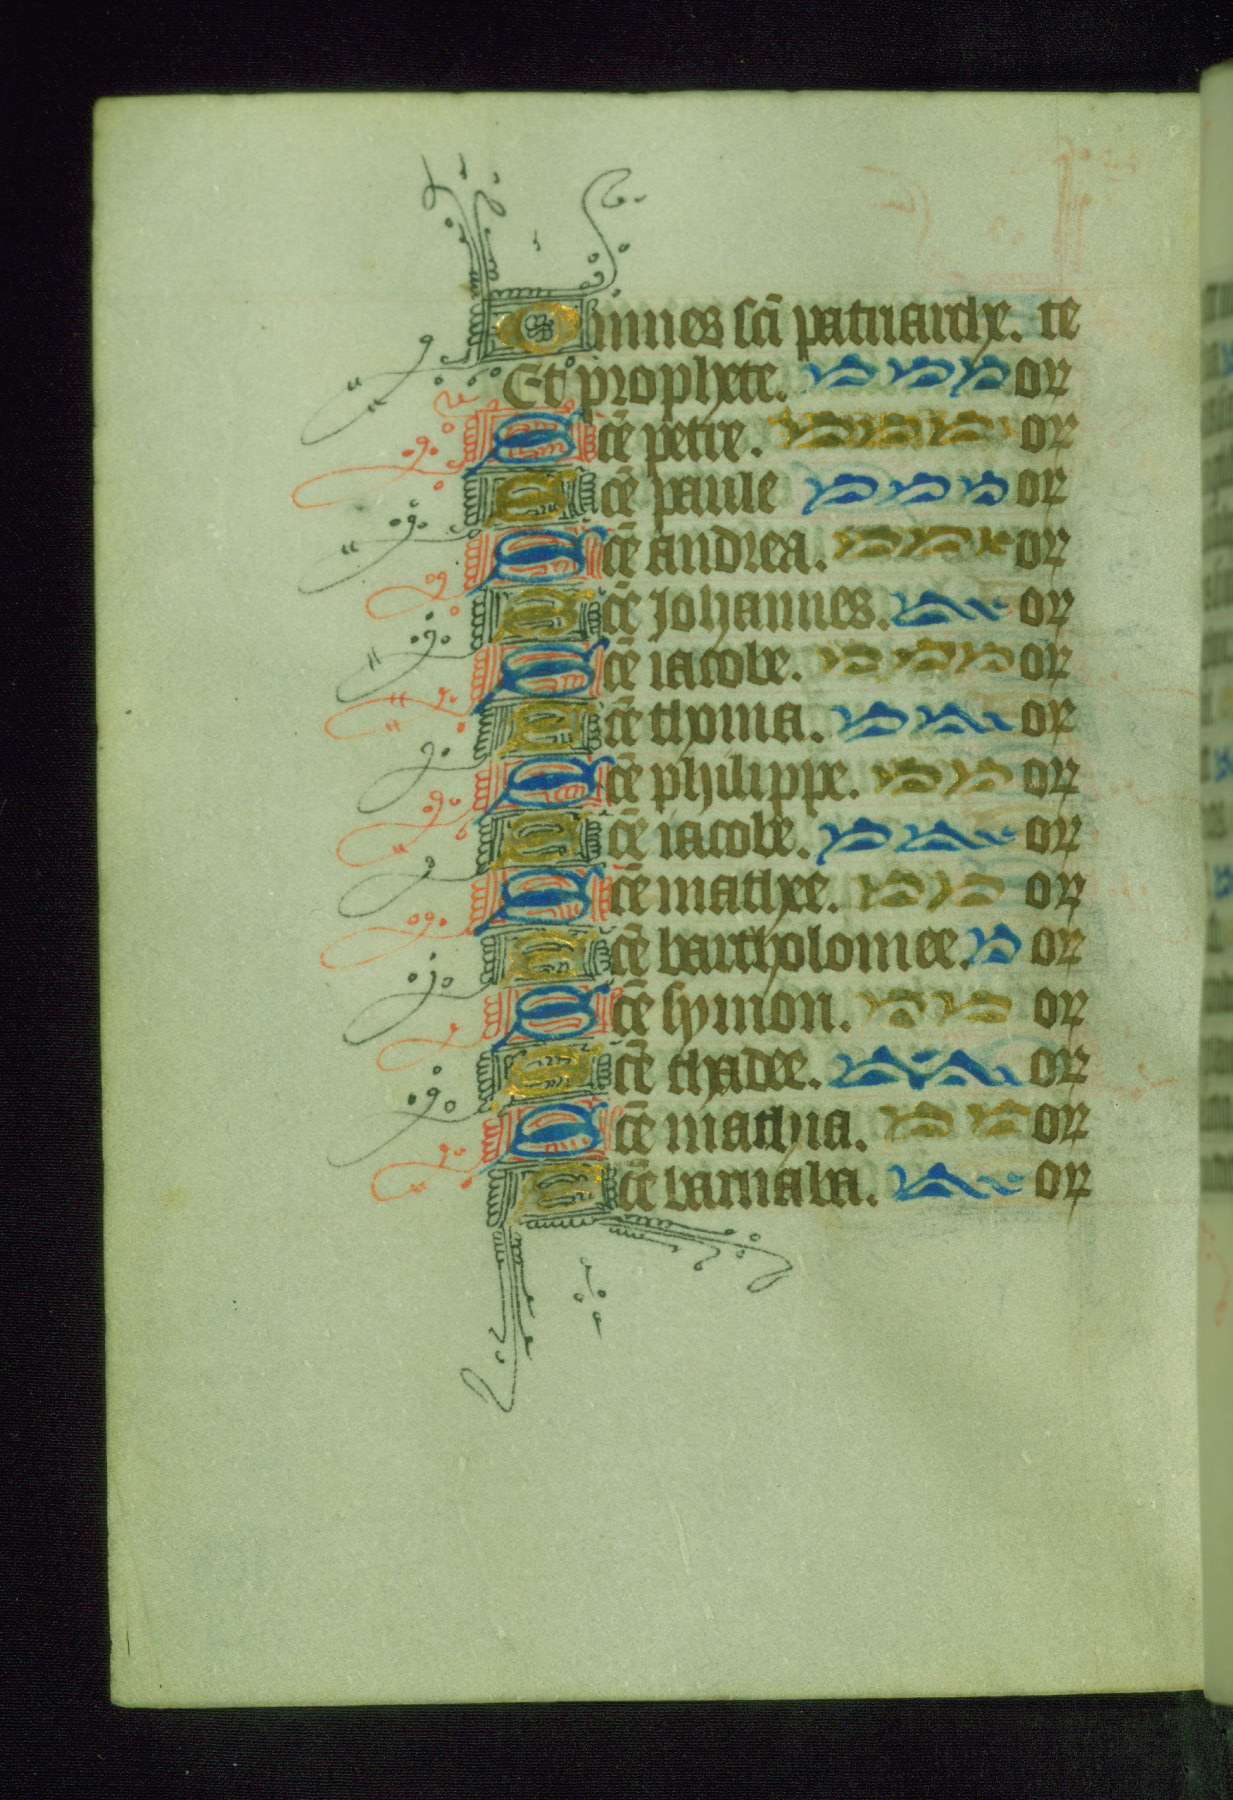 Omnes scī patriarche. te
Et prophete. or
Scē petre. or
Scē paule or
Scē andrea. or
Scē Johannes. or
Scē iacobe. or
Scē thoma. or
Scē philippe. or
Scē iacobe. or
Scē mathee. or
Scē bartholomee. or
Scē symon. or
Scē thadee. or
Scē mathia. or
Scē barnaba. or